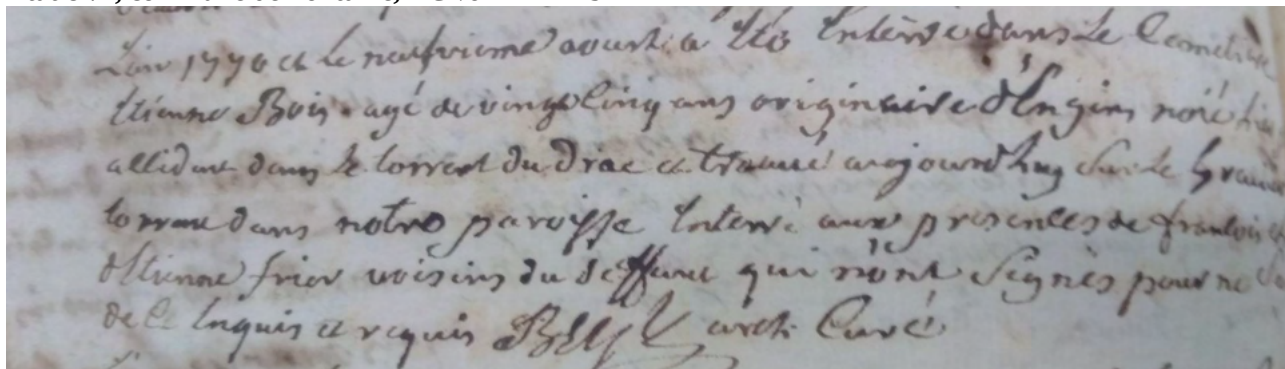 Lan 1770 et le neufvieme aoust a été Enterré dans Le Cemitiere
Etienne Bois agé de vingt cinq ans originaire d'Engins noié hier
dans le torrent du Drac et trouvé aujourdhuy sur le
dans notre paroisse Enterré aux presences de francois et
d'Etienne frier voisins du deffunt qui n'ont Signés pour ne
de ce Enquis et requis curé